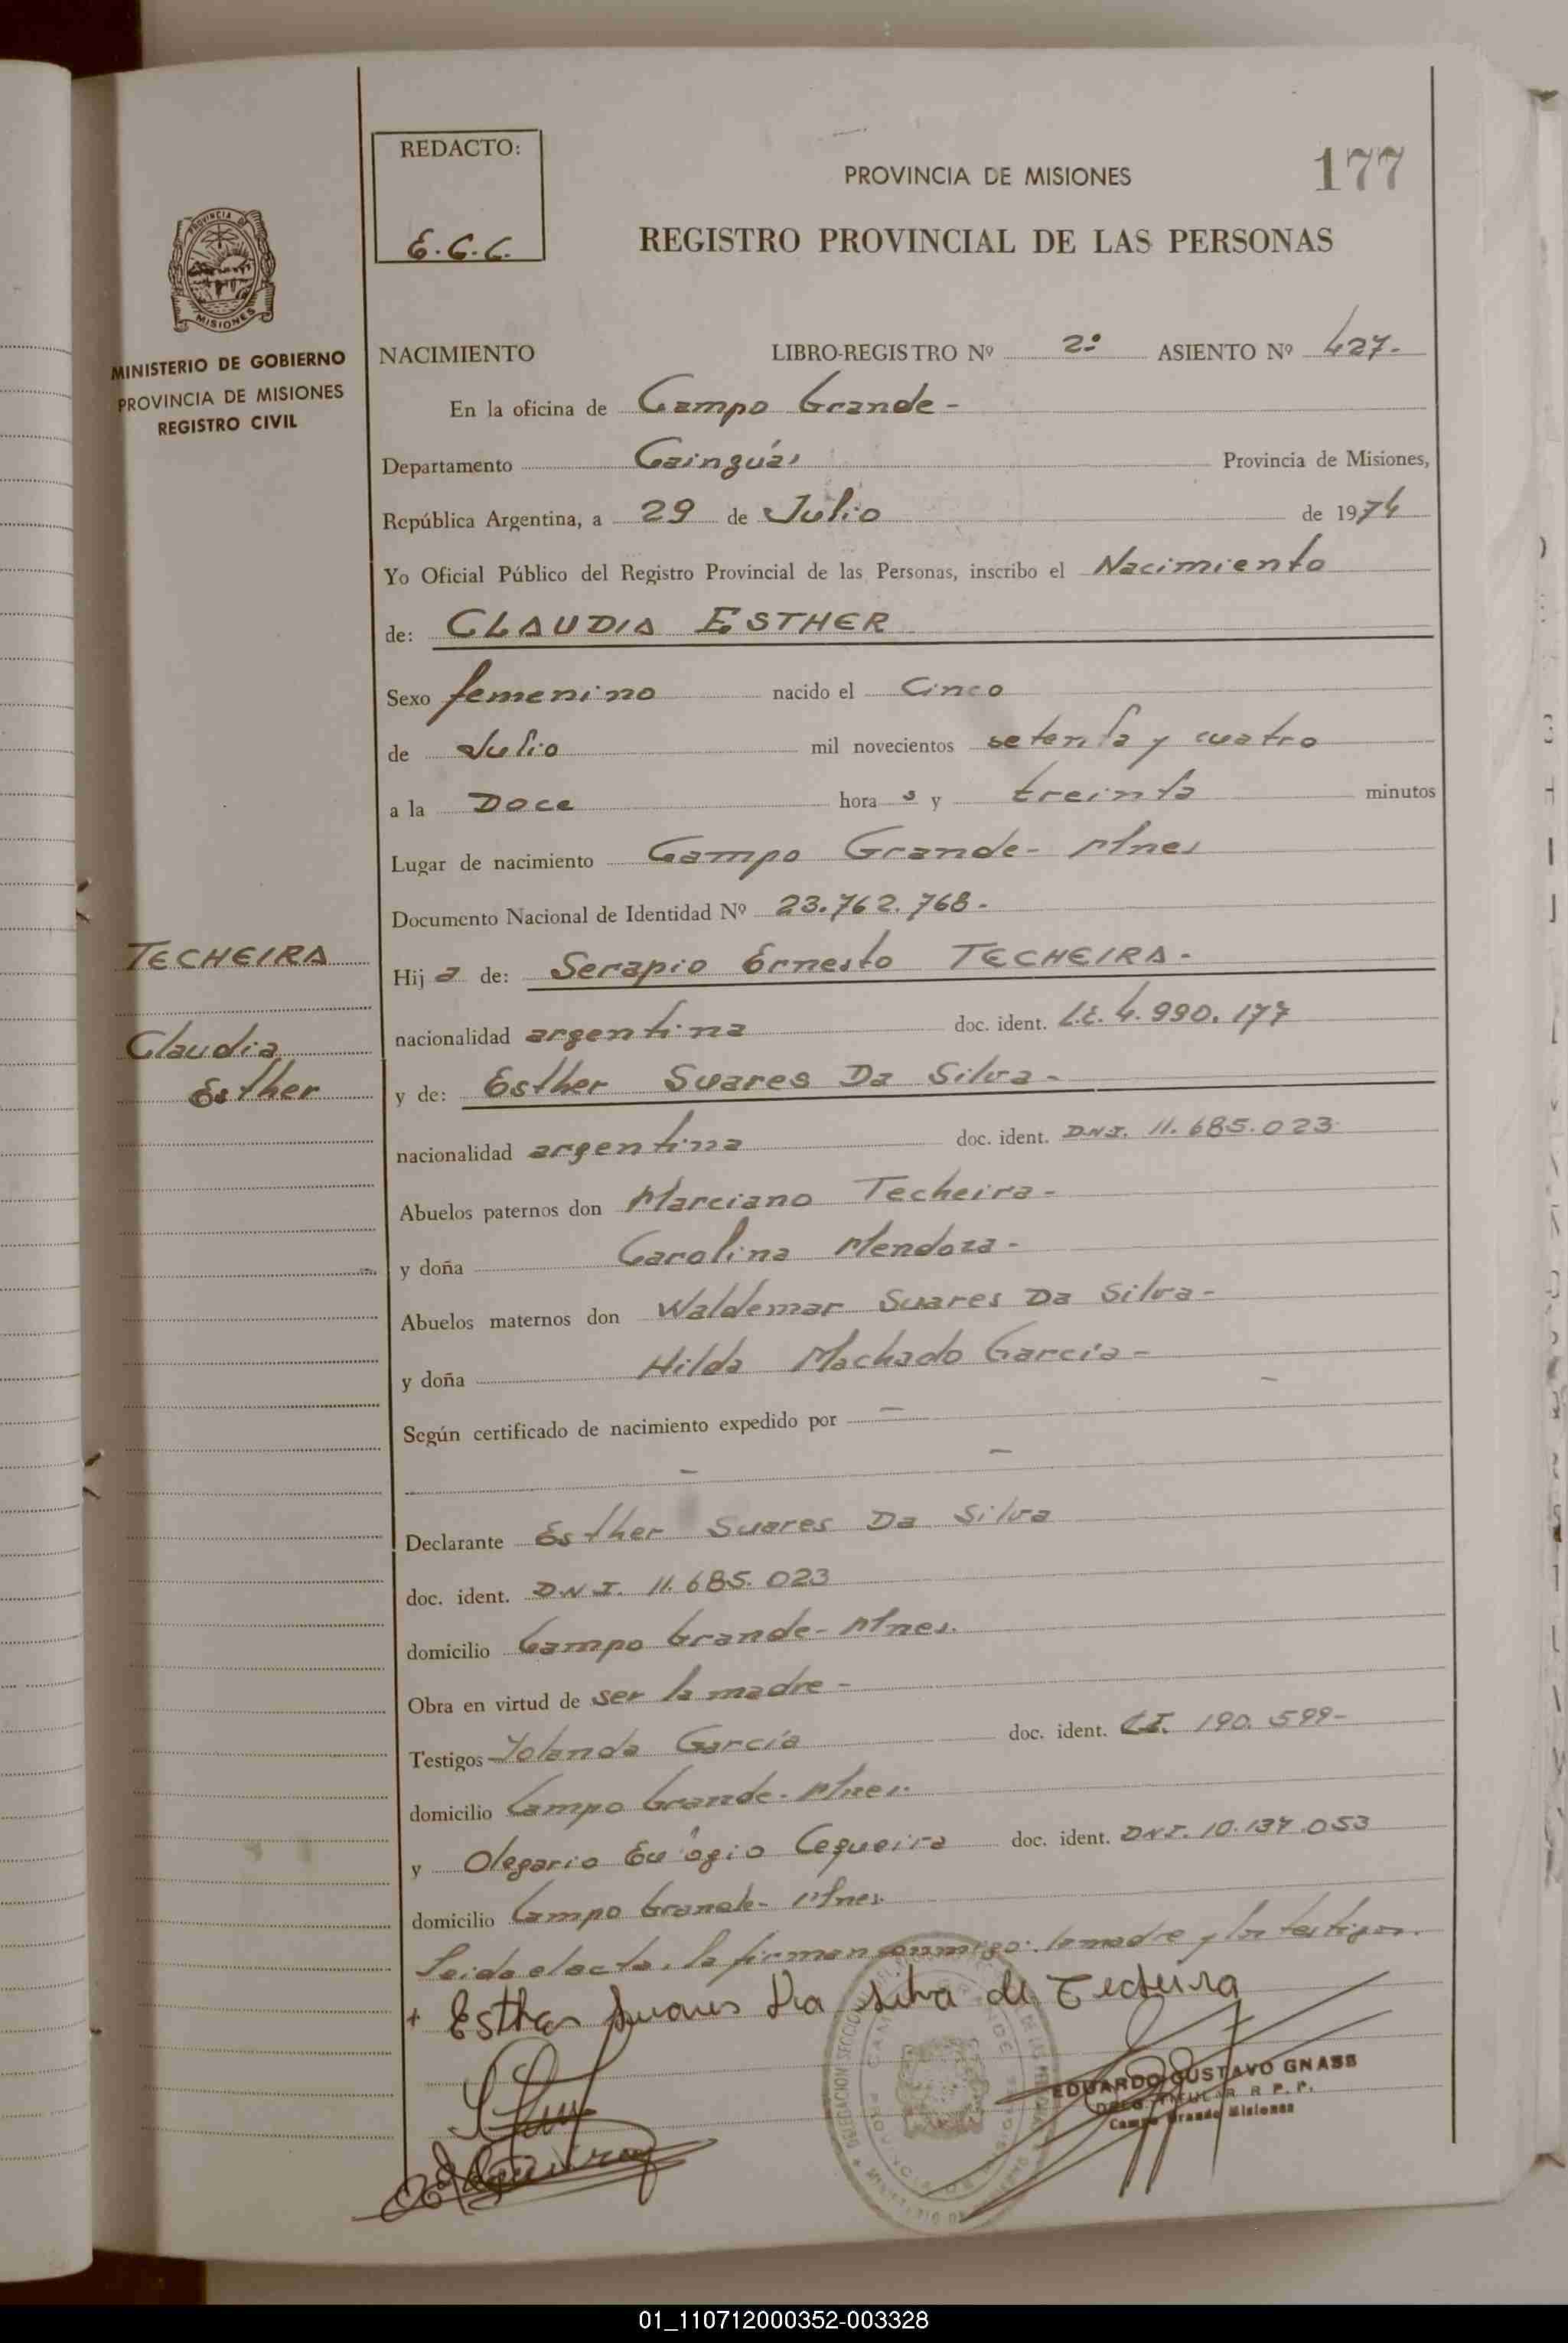 REDACTO:
E.G.C.
PROVINCIA DE MISIONES
177
REGISTRO PROVINCIAL DE LAS PERSONAS
PROVINCIA DE
MISIONES
MINISTERIO DE GOBIERNO
PROVINCIA DE MISIONES
REGISTRO CIVIL
NACIMIENTO LIBRO-REGISTRO Nº 2º ASIENTO Nº 427.-
En la oficina de Campo Grande -
Departamento Cainguás Provincia de Misiones,
República Argentina, a 29 de Julio de 1974
Yo Oficial Público del Registro Provincial de las Personas, inscribo el Nacimiento
de: CLAUDIA ESTHER
Sexo femenino nacido el Cinco
de Julio mil novecientos setenta y cuatro
a la Doce hora s y treinta minutos
Lugar de nacimiento Campo Grande- Mnes
Documento Nacional de Identidad Nº 23.762.768.-
TECHEIRA
Claudia
Esther
Hij a de: Serapio Ernesto TECHEIRA.-
nacionalidad argentina doc. ident. L.E. 4.990.177
y de: Esther Suares Da Silva-
nacionalidad argentina doc. ident. D.N.I. 11.685.023
Abuelos paternos don Marciano Techeira-
y doña Carolina Mendoza-
Abuelos maternos don Waldemar Suares Da Silva-
y doña Hilda Machado García-
Según certificado de nacimiento expedido por -
Declarante Esther Suares Da Silva
doc. ident. D.N.I. 11.685.023
domicilio Campo Grande- Mnes.
Obra en virtud de ser la madre-
Testigos Yolanda García doc. ident. C.I. 190.599-
domicilio Campo Grande- Mnes.
y Olegario Eulogio Cequeira doc. ident. D.N.I. 10.137.053
domicilio Campo Grande- Mnes.
Leida el acta, la firman conmigo: la madre y los testigos.
+ Esther Suares Da Silva de Techeira
EDUARDO GUSTAVO GNASS
DELEG. TITULAR R P. P.
Campo Grande Misiones
01_110712000352-003328